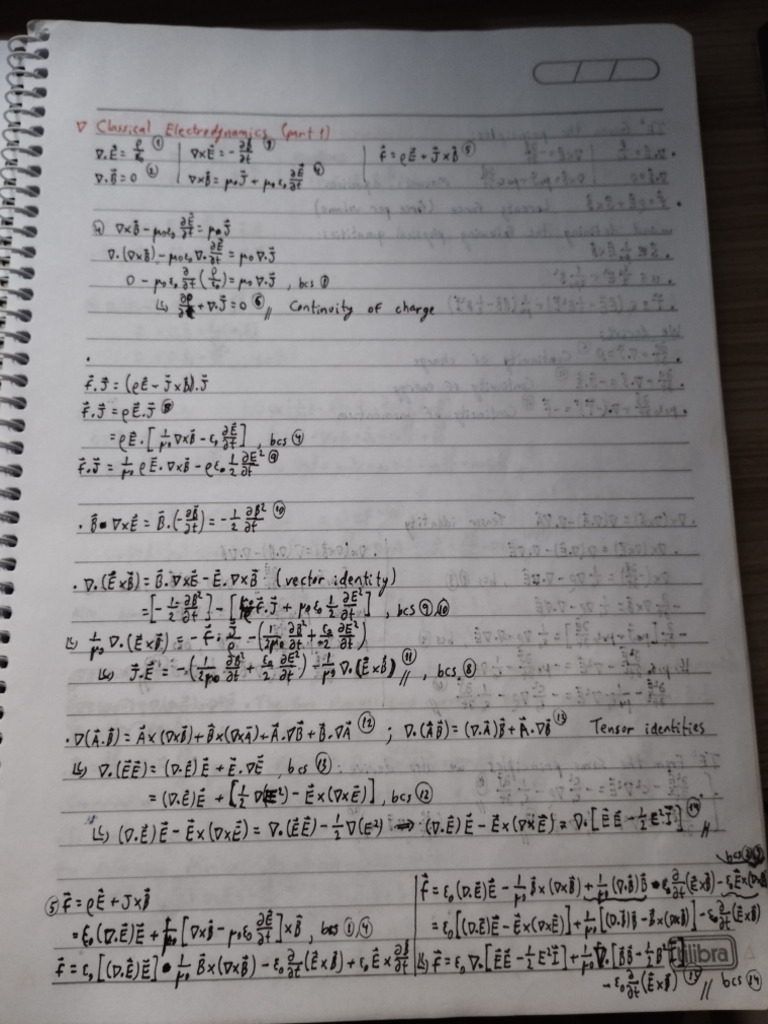 ∇ Classical Electrodynamics (part 1)
∇.E⃗ = ρ/ε₀ ① | ∇×E⃗ = -∂B⃗/∂t ③ | f⃗ = ρE⃗ + J⃗×B⃗ ⑤
∇.B⃗ = 0 ② | ∇×B⃗ = μ₀J⃗ + μ₀ε₀ ∂E⃗/∂t ④
④ ∇×B⃗ - μ₀ε₀ ∂E⃗/∂t = μ₀J⃗
∇.(∇×B⃗) - μ₀ε₀ ∇.∂E⃗/∂t = μ₀∇.J⃗
0 - μ₀ε₀ ∂/∂t (ρ/ε₀) = μ₀∇.J⃗ , bcs ①
↳ ∂ρ/∂t + ∇.J⃗ = 0 ⑥ // Continuity of charge
.
f⃗.J⃗ = (ρE⃗ - J⃗×B⃗).J⃗
f⃗.J⃗ = ρE⃗.J⃗ ⑧
= ρE⃗.[1/μ₀ ∇×B⃗ - ε₀ ∂E⃗/∂t] , bcs ④
f⃗.J⃗ = 1/μ₀ ρE⃗.∇×B⃗ - ρε₀ 1/2 ∂E²/∂t ⑨
. B⃗.∇×E⃗ = B⃗.(-∂B⃗/∂t) = -1/2 ∂B²/∂t ⑩
. ∇.(E⃗×B⃗) = B⃗.∇×E⃗ - E⃗.∇×B⃗ (vector identity)
= [-1/2 ∂B²/∂t] - [μ₀/ρ f⃗.J⃗ + μ₀ε₀ 1/2 ∂E²/∂t] , bcs ⑨,⑩
↳ 1/μ₀ ∇.(E⃗×B⃗) = -f⃗.J⃗/ρ - (1/2μ₀ ∂B²/∂t + ε₀/2 ∂E²/∂t)
↳ J⃗.E⃗ = -(1/2μ₀ ∂B²/∂t + ε₀/2 ∂E²/∂t) - 1/μ₀ ∇.(E⃗×B⃗) ⑪ // , bcs ⑧
. ∇(A⃗.B⃗) = A⃗×(∇×B⃗) + B⃗×(∇×A⃗) + A⃗.∇B⃗ + B⃗.∇A⃗ ⑫ ; ∇.(A⃗B⃗) = (∇.A⃗)B⃗ + A⃗.∇B⃗ ⑬ Tensor identities
↳ ∇.(E⃗E⃗) = (∇.E⃗)E⃗ + E⃗.∇E⃗ , bcs ⑬
= (∇.E⃗)E⃗ + [1/2 ∇(E²) - E⃗×(∇×E⃗)] , bcs ⑫
↳ (∇.E⃗)E⃗ - E⃗×(∇×E⃗) = ∇.(E⃗E⃗) - 1/2 ∇(E²) ⟹ (∇.E⃗)E⃗ - E⃗×(∇×E⃗) = ∇.[E⃗E⃗ - 1/2 E²I⃗] ⑭ //
⑤ f⃗ = ρE⃗ + J×B⃗
= ε₀(∇.E⃗)E⃗ + 1/μ₀ [∇×B⃗ - μ₀ε₀ ∂E⃗/∂t]×B⃗ , bcs ①,④
f⃗ = ε₀[(∇.E⃗)E⃗] - 1/μ₀ B⃗×(∇×B⃗) - ε₀ ∂/∂t(E⃗×B⃗) + ε₀E⃗×∂B⃗/∂t
f⃗ = ε₀(∇.E⃗)E⃗ - 1/μ₀ B⃗×(∇×B⃗) + 1/μ₀ (∇.B⃗)B⃗ - ε₀ ∂/∂t(E⃗×B⃗) - ε₀E⃗×(∇×E⃗)
= ε₀[(∇.E⃗)E⃗ - E⃗×(∇×E⃗)] + 1/μ₀ [(∇.B⃗)B⃗ - B⃗×(∇×B⃗)] - ε₀ ∂/∂t(E⃗×B⃗)
↳ f⃗ = ε₀∇.[E⃗E⃗ - 1/2 E²I⃗] + 1/μ₀ ∇.[B⃗B⃗ - 1/2 B²I⃗]
- ε₀ ∂/∂t(E⃗×B⃗) ⑮ // bcs ⑭